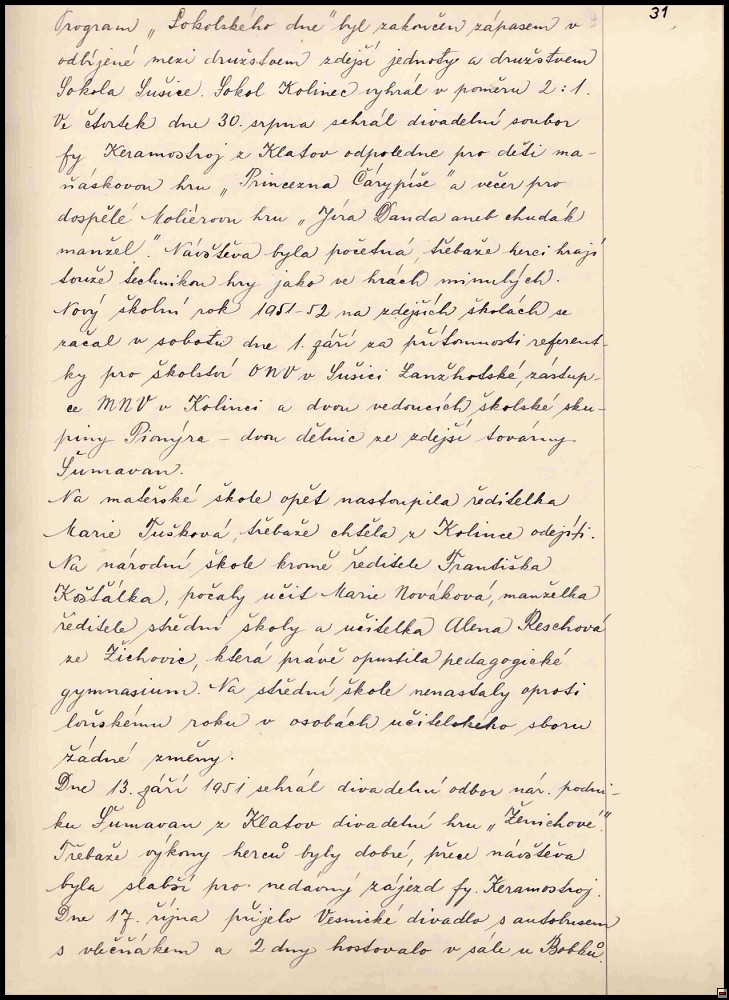 31
Program „Sokolského dne" byl zakončen zápasem v
odbíjené mezi družstvem zdejší jednoty a družstvem
Sokola Sušice. Sokol Kolinec vyhrál v poměru 2:1.
Ve čtvrtek dne 30. srpna sehrál divadelní soubor
fy Keramostroj z Klatov odpoledne pro děti ma-
ňáskovou hru „Princezna Čárypíše" a večer pro
dospělé Moliérovu hru „Jíra Danda aneb chudák
manžel". Návštěva byla početná, třebaže herci hrají
touže technikou hry jako ve hrách minulých.
Nový školní rok 1951-52 na zdejších školách se
začal v sobotu dne 1. září za přítomnosti referent-
ky pro školství ONV v Sušici Lanžhotské, zástup-
ce MNV v Kolinci a dvou vedoucích školské sku-
piny Pionýra - dvou dělnic ze zdejší továrny
Šumavan.
Na mateřské škole opět nastoupila ředitelka
Marie Tušková, třebaže chtěla z Kolince odejíti.
Na národní škole kromě ředitele Františka
Košťálka, počaly učit Marie Nováková, manželka
ředitele střední školy a učitelka Alena Reschová
ze Žichovic, která právě opustila pedagogické
gymnasium. Na střední škole nenastaly oproti
loňskému roku v osobách učitelského sboru
žádné změny.
Dne 13. září 1951 sehrál divadelní odbor nár. podni-
ku Šumavan z Klatov divadelní hru „Ženichové".
Třebaže výkony herců byly dobré, přece návštěva
byla slabší pro nedávný zájezd fy. Keramostroj.
Dne 17. října přijelo Vesnické divadlo s autobusem
s vlečňákem a 2 dny hostovalo v sále u Bobků.